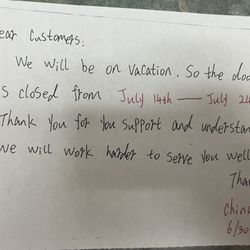 ear Customers:
We will be on vacation. So the doo
s closed from July 14th — July 2
Thank you for you support and understan
we will work harder to serve you well
Than
Chin
6/30